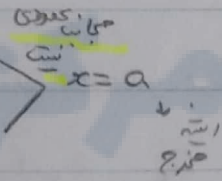 مجانب عمودی
نیست
x = a
↓
ریشه
مخرج